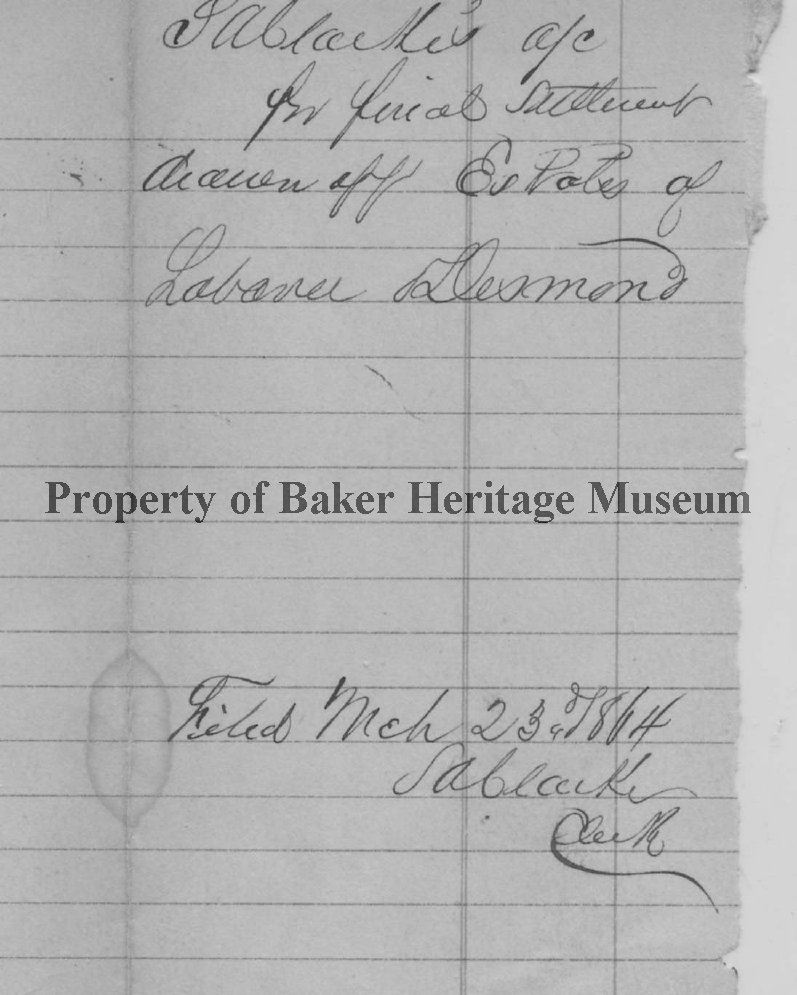 S A Clarke's a/c
for final Settlement
drawn off Estates of
Labaree & Desmond
Property of Baker Heritage Museum
Filed Mch 23d 1864
S A Clarke
Clerk